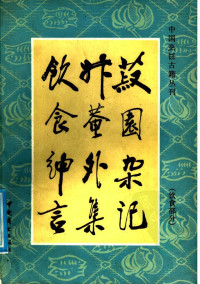 中国烹饪古籍丛刊
菽園杂记
升菴外集
飲食紳言
(饮食部分)